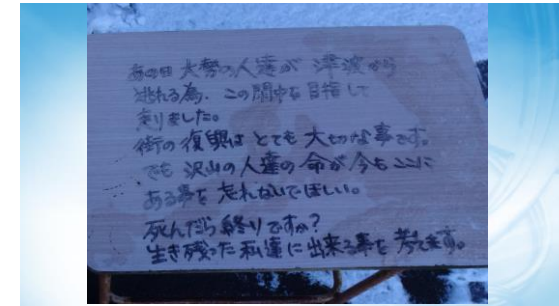 あの日 大勢の人達が 津波から
逃れる為、この閖中を目指して
走りました。
街の復興は とても 大切な事です。
でも 沢山の人達の 命が 今も ここに
ある事を 忘れないでほしい。
死んだら終りですか?
生き残った私達に出来る事を 考えます。